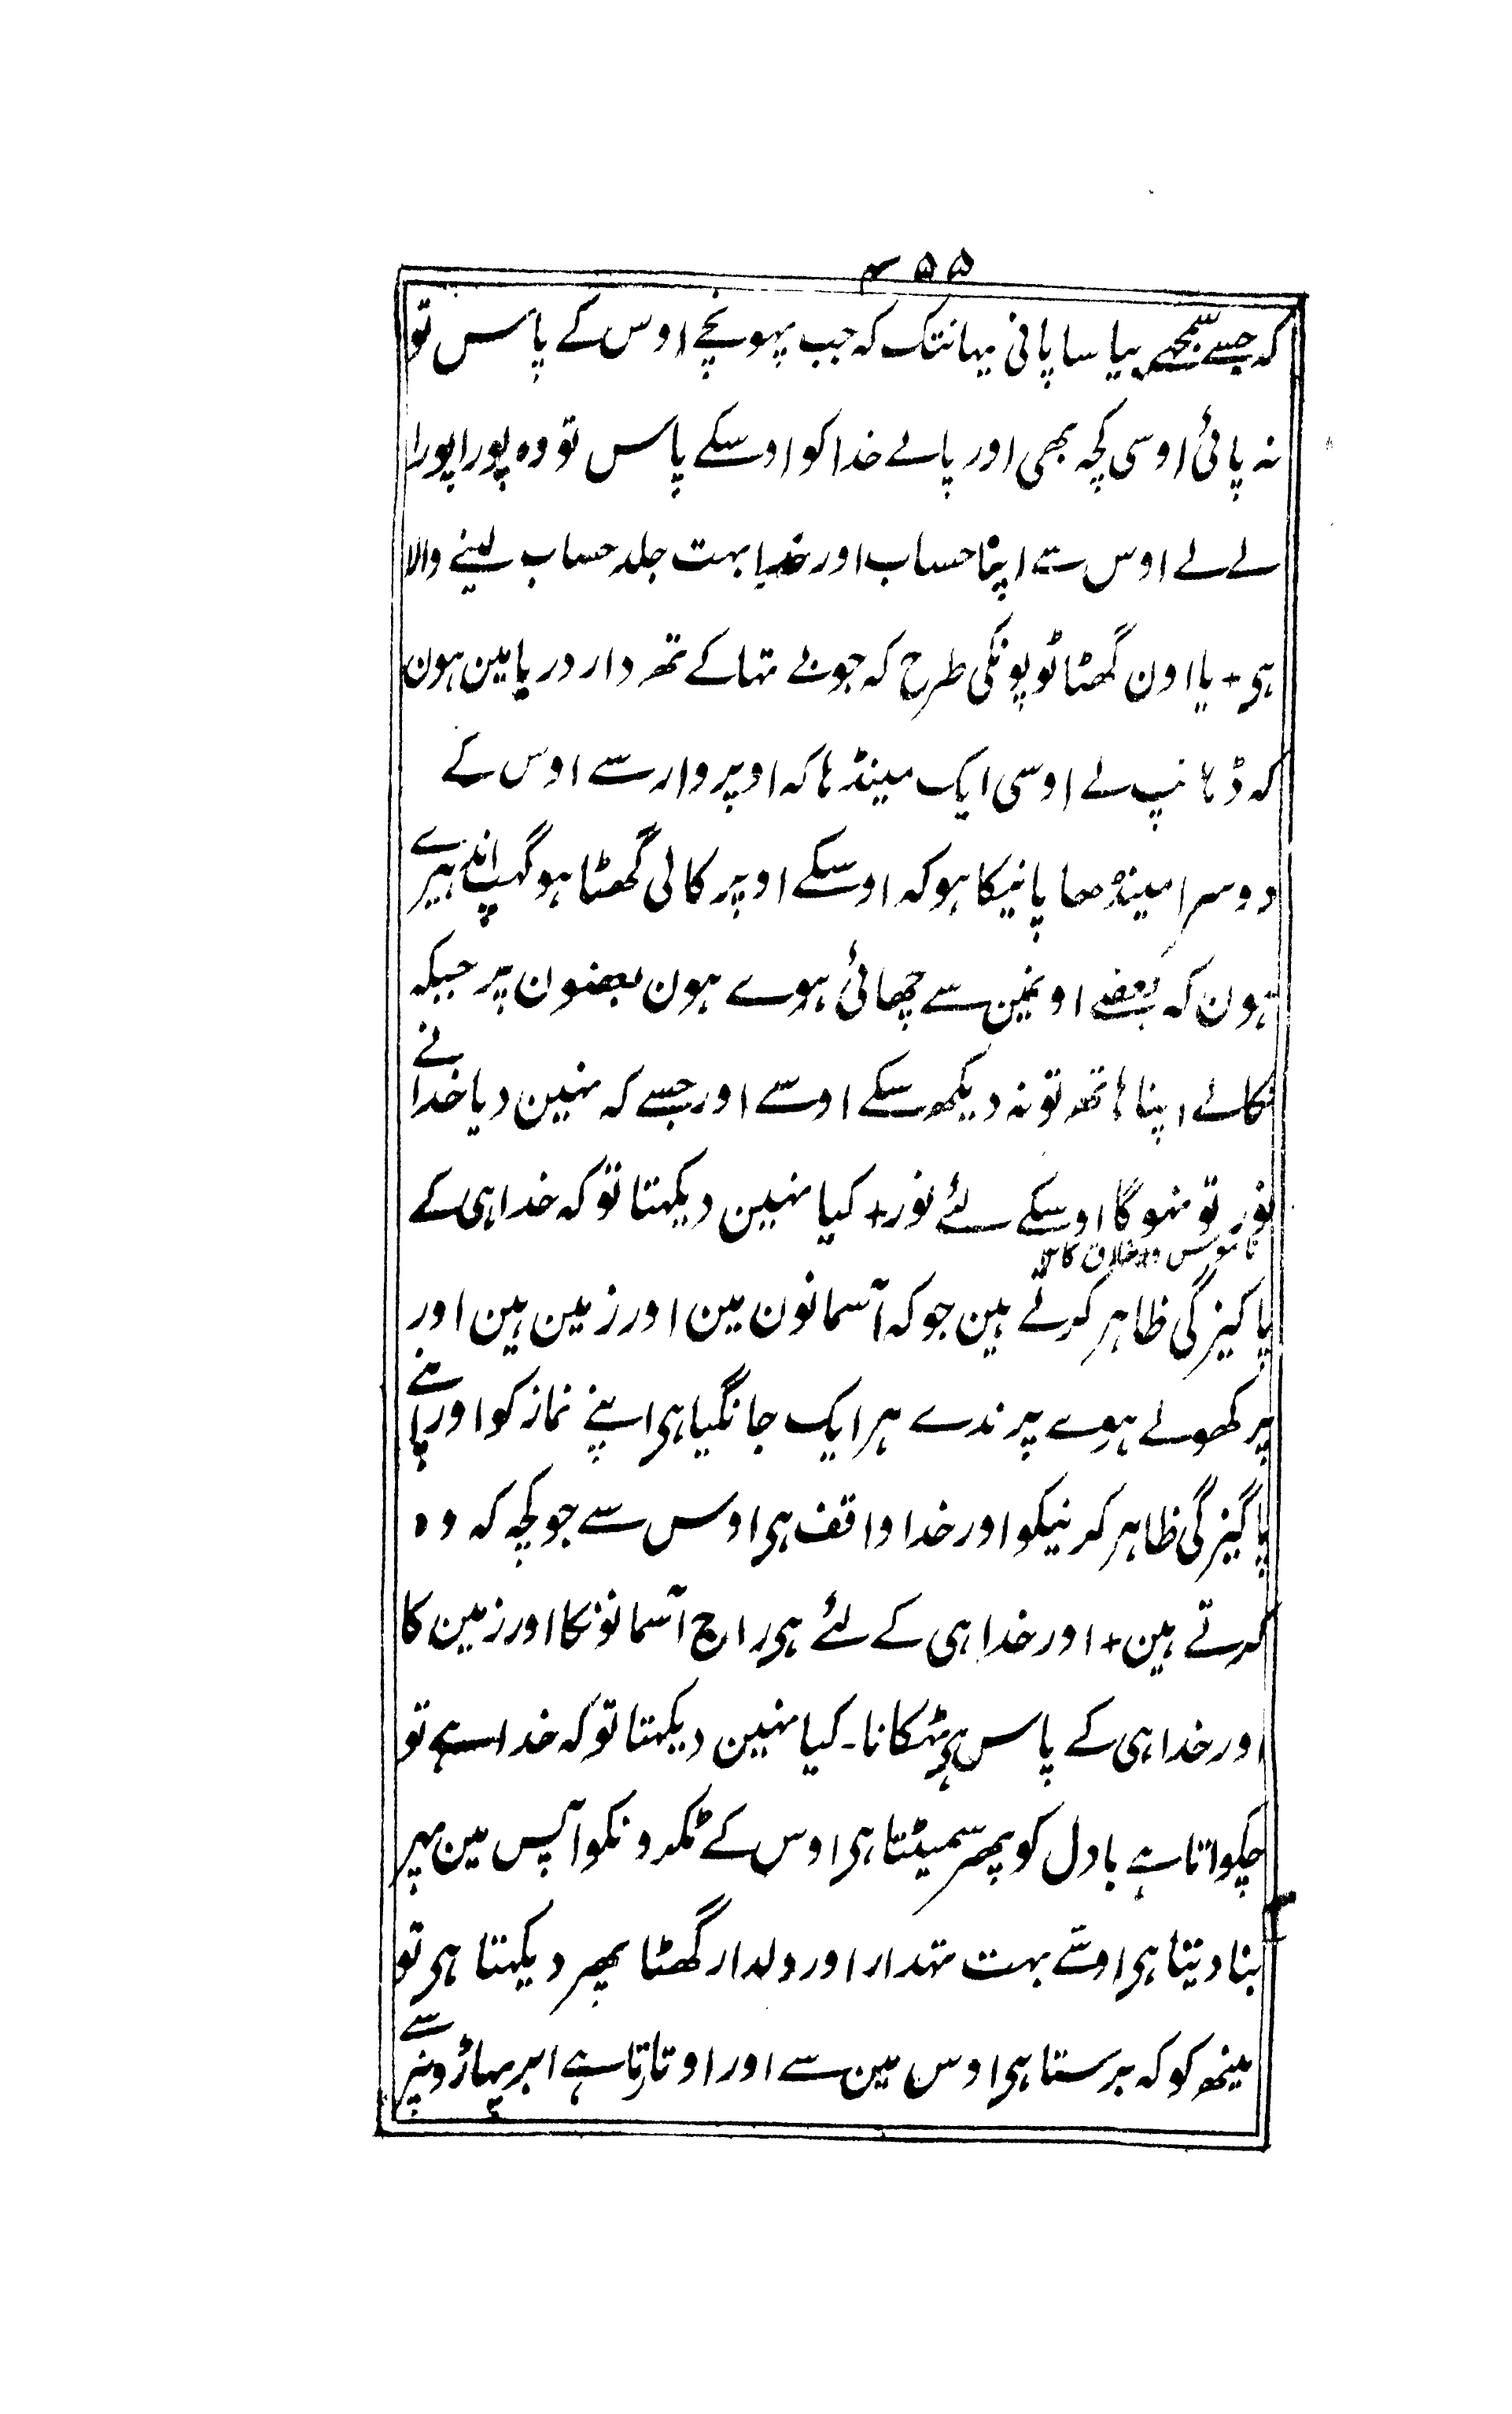 ۴۵۵
کہ جسے سمجھے پیاسا پانی یہانتک کہ جب پہونچے اوس کے پاس تو
نہ پائی اوسی کچہ بھی اور پالے خدا کو اوسکے پاس تو وہ پورا پورا
لے لے اوس سے اپنا حساب اور خدا بہت جلد حساب لینے والا
ہی + یا اون گھٹا ٹوپونکی طرح کہ جو بے تہا کے تھہ دار دریا مین ہون
کہ ڈہانپ لے اوسی ایک مینڈہا کہ اوپر وار سے اوس کے
دوسرا مینڈھا پانیکا ہو کہ اوسکے اوپر کالی گھٹا ہو گہپ اندہیرے
ہون کہ بعضے اونمین سے چھائی ہوے ہون بعضون پر جبکہ
نکالے اپنا ہاتھہ تو نہ دیکھہ سکے اوسے اور جسے کہ نہین دیا خدا نے
نور تو نہوگا اوسکے لئے نور + کیا نہین دیکہتا تو کہ خدا ہی کے
پاکیزگی ظاہر کرتے ہین جو کہ آسمانون مین اور زمین ہین اور
پر کھولے ہوے پرندے ہر ایک جانگیا ہی اپنے نماز کو اور اپنے
پاگیزگی ظاہر کرنیکو اور خدا واقف ہی اوس سے جو کچہ کہ وہ
کرتے ہین + اور خدا ہی کے لئے ہی راج آسمانونکا اور زمین کا
اور خدا ہی کے پاس ہی ٹہکانا۔ کیا نہین دیکہتا تو کہ خدا ہے تو
چکواتا ہے بادل کو پھر سمیٹتا ہی اوس کے ٹکڑونکو آپس مین پہر
بنا دیتا ہی اوسے بہت تہدار اور دلدار گھٹا پھر دیکہتا ہی تو
مینھہ کو کہ برستا ہی اوس مین سے اور اوتارتا ہے ابر پہاڑونپر سے